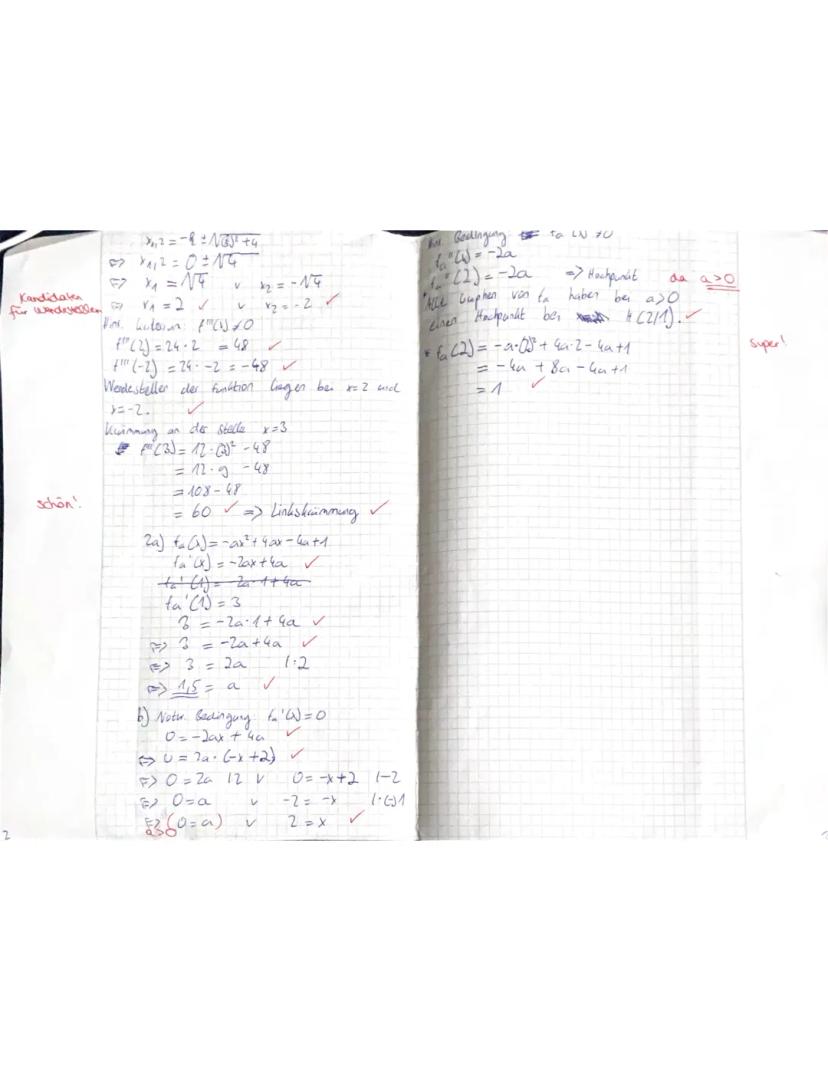 x₁,₂ = -0/2 ± √(0/2)² + 4
⇔ x₁,₂ = 0 ± √4
⇔ x₁ = √4 v x₂ = -√4
Kandidaten
für Wendestellen
⇔ x₁ = 2 ✓ v x₂ = -2 ✓
Hin. Kriterium f'''(x) ≠ 0
f'''(2) = 24 · 2 = 48 ✓
f'''(-2) = 24 · -2 = -48 ✓
Wendestellen der Funktion liegen bei x=2 und
x=-2. ✓
Krümmung an der Stelle x=3
f''(3) = 12 · (3)² - 48
= 12 · 9 - 48
= 108 - 48
schön!
= 60 ✓ => Linkskrümmung ✓
2a) fa(x) = -ax² + 4ax - 4a + 1
fa'(x) = -2ax + 4a ✓
fa'(1) = -2a · 1 + 4a
fa'(1) = 3
3 = -2a · 1 + 4a ✓
⇔ 3 = -2a + 4a ✓
⇔ 3 = 2a |:2
⇔ 1,5 = a ✓
b) Notw. Bedingung: fa'(x) = 0
0 = -2ax + 4a ✓
⇔ 0 = 2a · (-x + 2) ✓
⇔ 0 = 2a |:2 v 0 = -x + 2 |-2
⇔ 0 = a v -2 = -x |·(-)1
⇔ (0 = a) v 2 = x ✓
a>0
2
Hin. Bedingung fa''(x) ≠ 0
fa''(x) = -2a
fa''(2) = -2a => Hochpunkt da a>0
Alle Graphen von fa haben bei a>0
einen Hochpunkt bei H(2/1). ✓
Super!
* fa(2) = -a · (2)² + 4a · 2 - 4a + 1
= -4a + 8a - 4a + 1
= 1 ✓